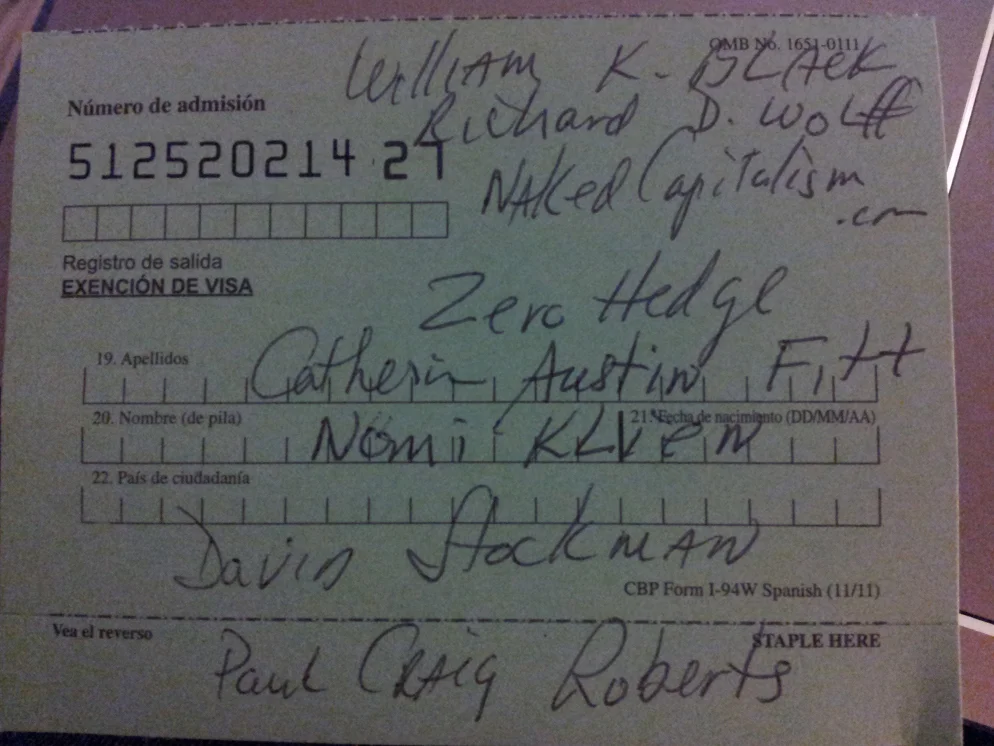 OMB No. 1651-0111
William K. Black
Número de admisión
Richard D. Wolff
512520214 27
Naked Capitalism
.com
Registro de salida
EXENCIÓN DE VISA
Zero Hedge
19. Apellidos
Catherin Austin Fitt
20. Nombre (de pila)
21. Fecha de nacimiento (DD/MM/AA)
Nomi Klien
22. País de ciudadanía
David Stockman
CBP Form I-94W Spanish (11/11)
Vea el reverso
STAPLE HERE
Paul Craig Roberts